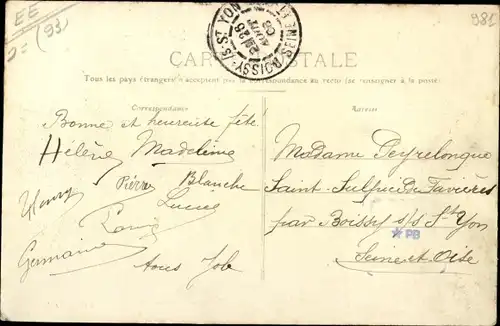 EE
(93)
985
BOISSY-S-ST YON
SEINE ET
CARTE POSTALE
Tous les pays étrangers n'acceptent pas la correspondance au recto (se renseigner à la poste)
Correspondance
Bonne et heureuse fête
Hélène Madeleine
Henry Pierre Blanche
Lucie
Germaine
tous
Adresse
Madame Peyrelongue
Saint-Sulpice De Favières
par Boissy s/s St Yon
Seine et Oise
PB